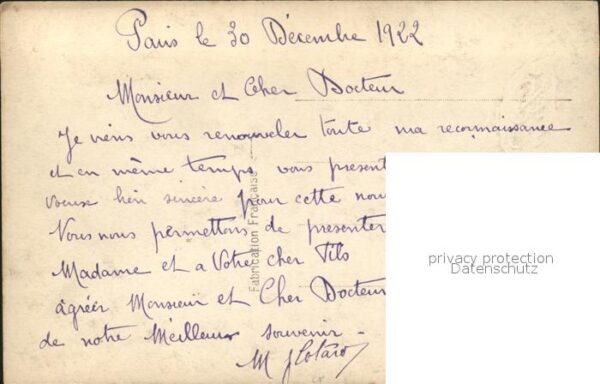 Paris le 30 Décembre 1922
Monsieur et Cher Docteur
Je viens vous renouveler toute ma reconnaissance
et en même temps vous present
bien sincère pour cette nou
Vous nous permettons de presenter
Madame et a Votre cher Fils
agréer Monsieur et Cher Docteur
de notre Meilleur souvenir -
M
Fabrication Française
privacy protection
Datenschutz